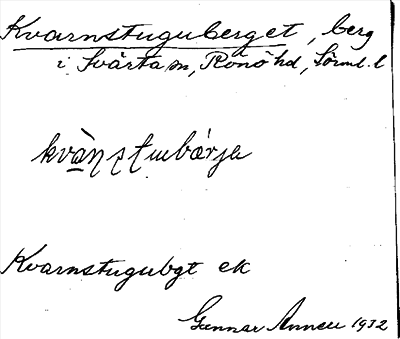 Kvarnstuguberget, berg
i Svärta sn, Rönö hd, Sörml. l
Kvarnstugubgt ek
Gunnar Anneu 1932